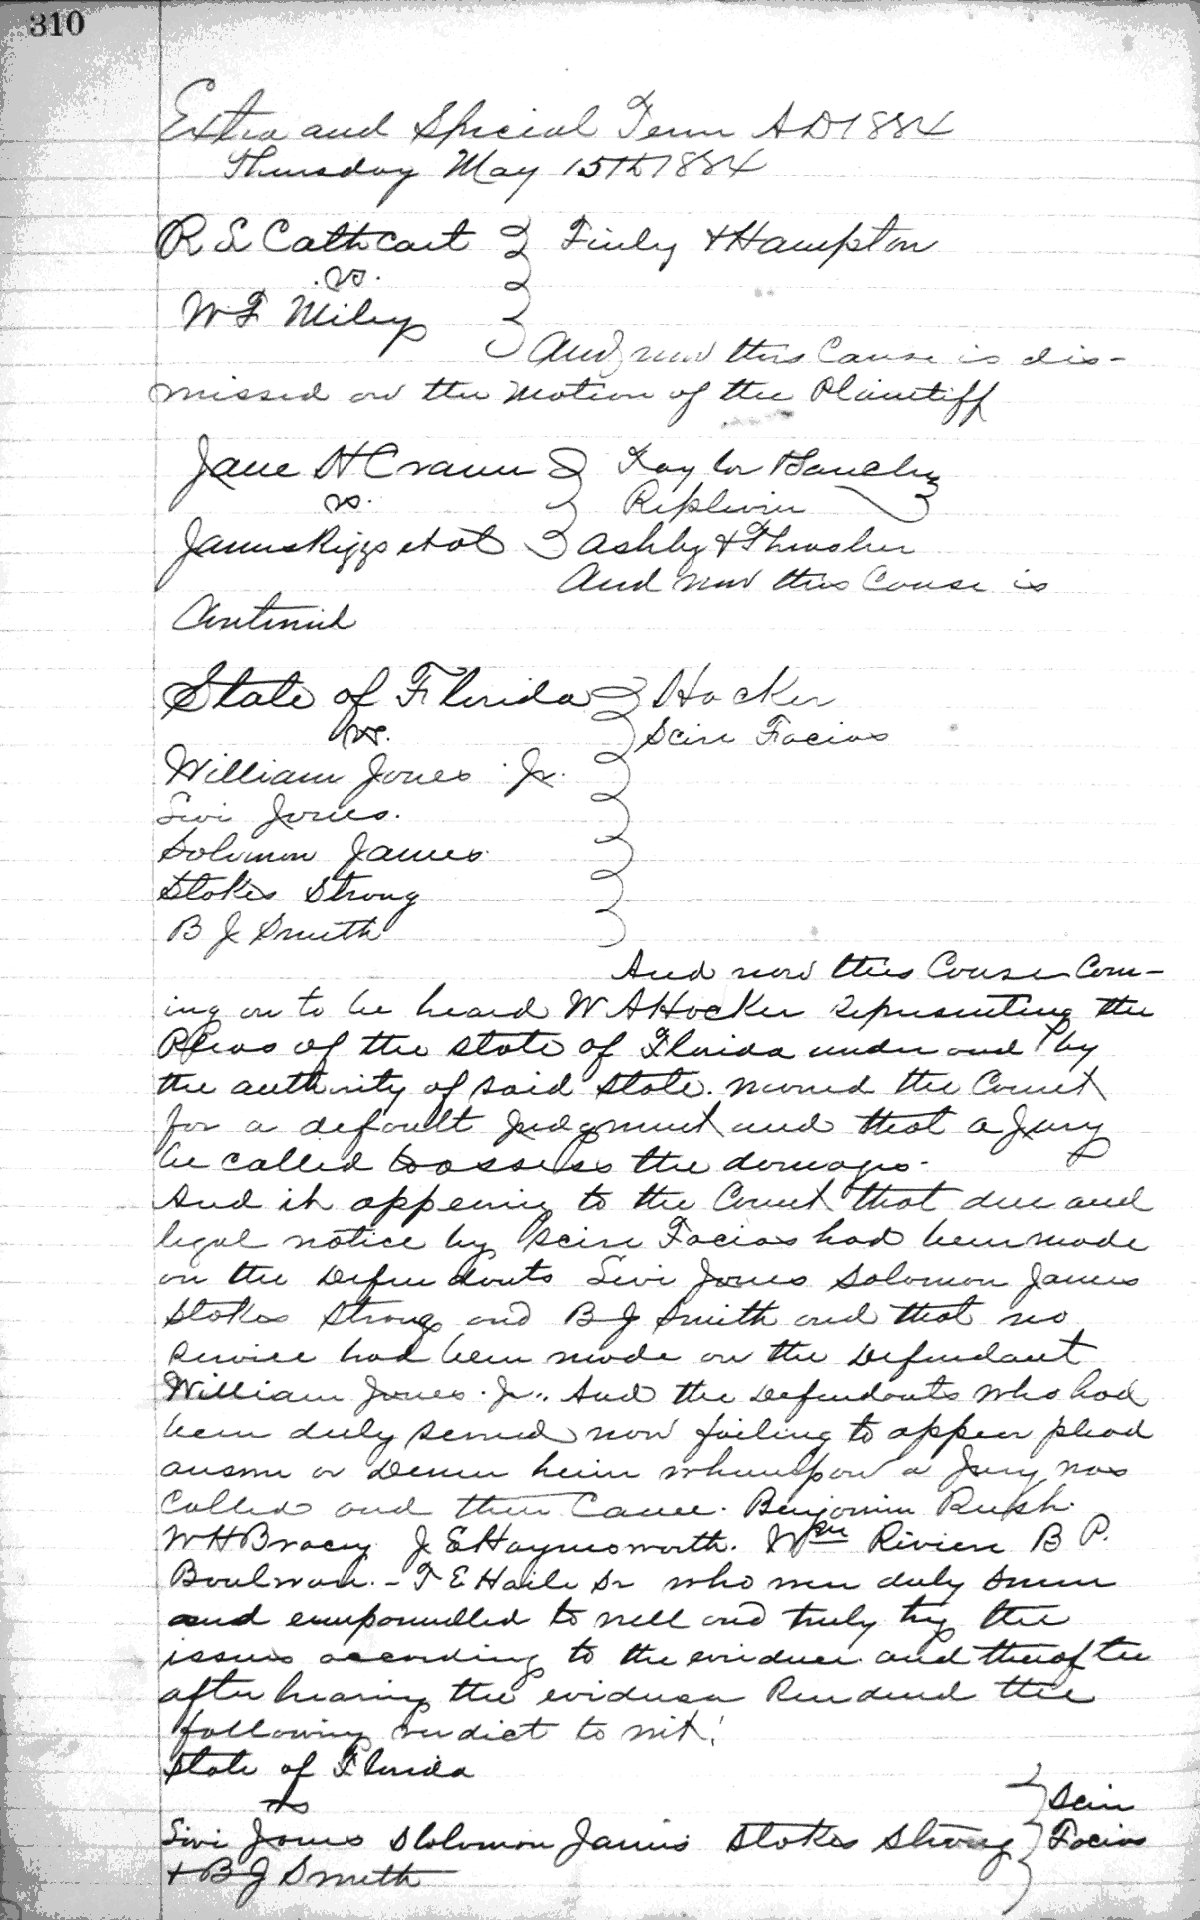 310
Extra and Special Term AD 1884
Thursday May 15th 1884
R S Cathcart Finly & Hampton
vs.
W F Miley
And now this Cause is dis-
missed on the Motion of the Plaintiff
Jane H Crann Taylor
vs. Replevin
James Riggs et al Ashby & Thrasher
And now this Cause is
Continued
State of Florida Hocker
vs. Scire Facias
William Jones Jr.
Levi Jones.
Solomon James
Stokes Strong
B J Smith
And now this Cause Com-
ing on to be heard W A Hocker representing the
Pleas of the State of Florida under and by
the authority of said State. moved the Court
for a default Judgment and that a Jury
be called to assess the damages.
And it appearing to the Court that due and
legal notice by Scire Facias had been made
on the Defendants Levi Jones Solomon James
Stokes Strong and B J Smith and that no
service had been made on the Defendant
William Jones Jr., And the Defendants who had
been duly served now failing to appear plead
answer or Demur herein whereupon a Jury was
Called and then Came. Benjamin Rush.
W H Bracey J E Haynsworth. Wm Riviere B P.
Boulware. - T E Haile Sr who were duly sworn
and empannelled to well and truly try the
issues according to the evidence and thereafter
after hearing the evidence Rendered the
following verdict to wit!
State of Florida
vs Scire
Levi Jones Solomon James Stokes Strong Facias
& B J Smith